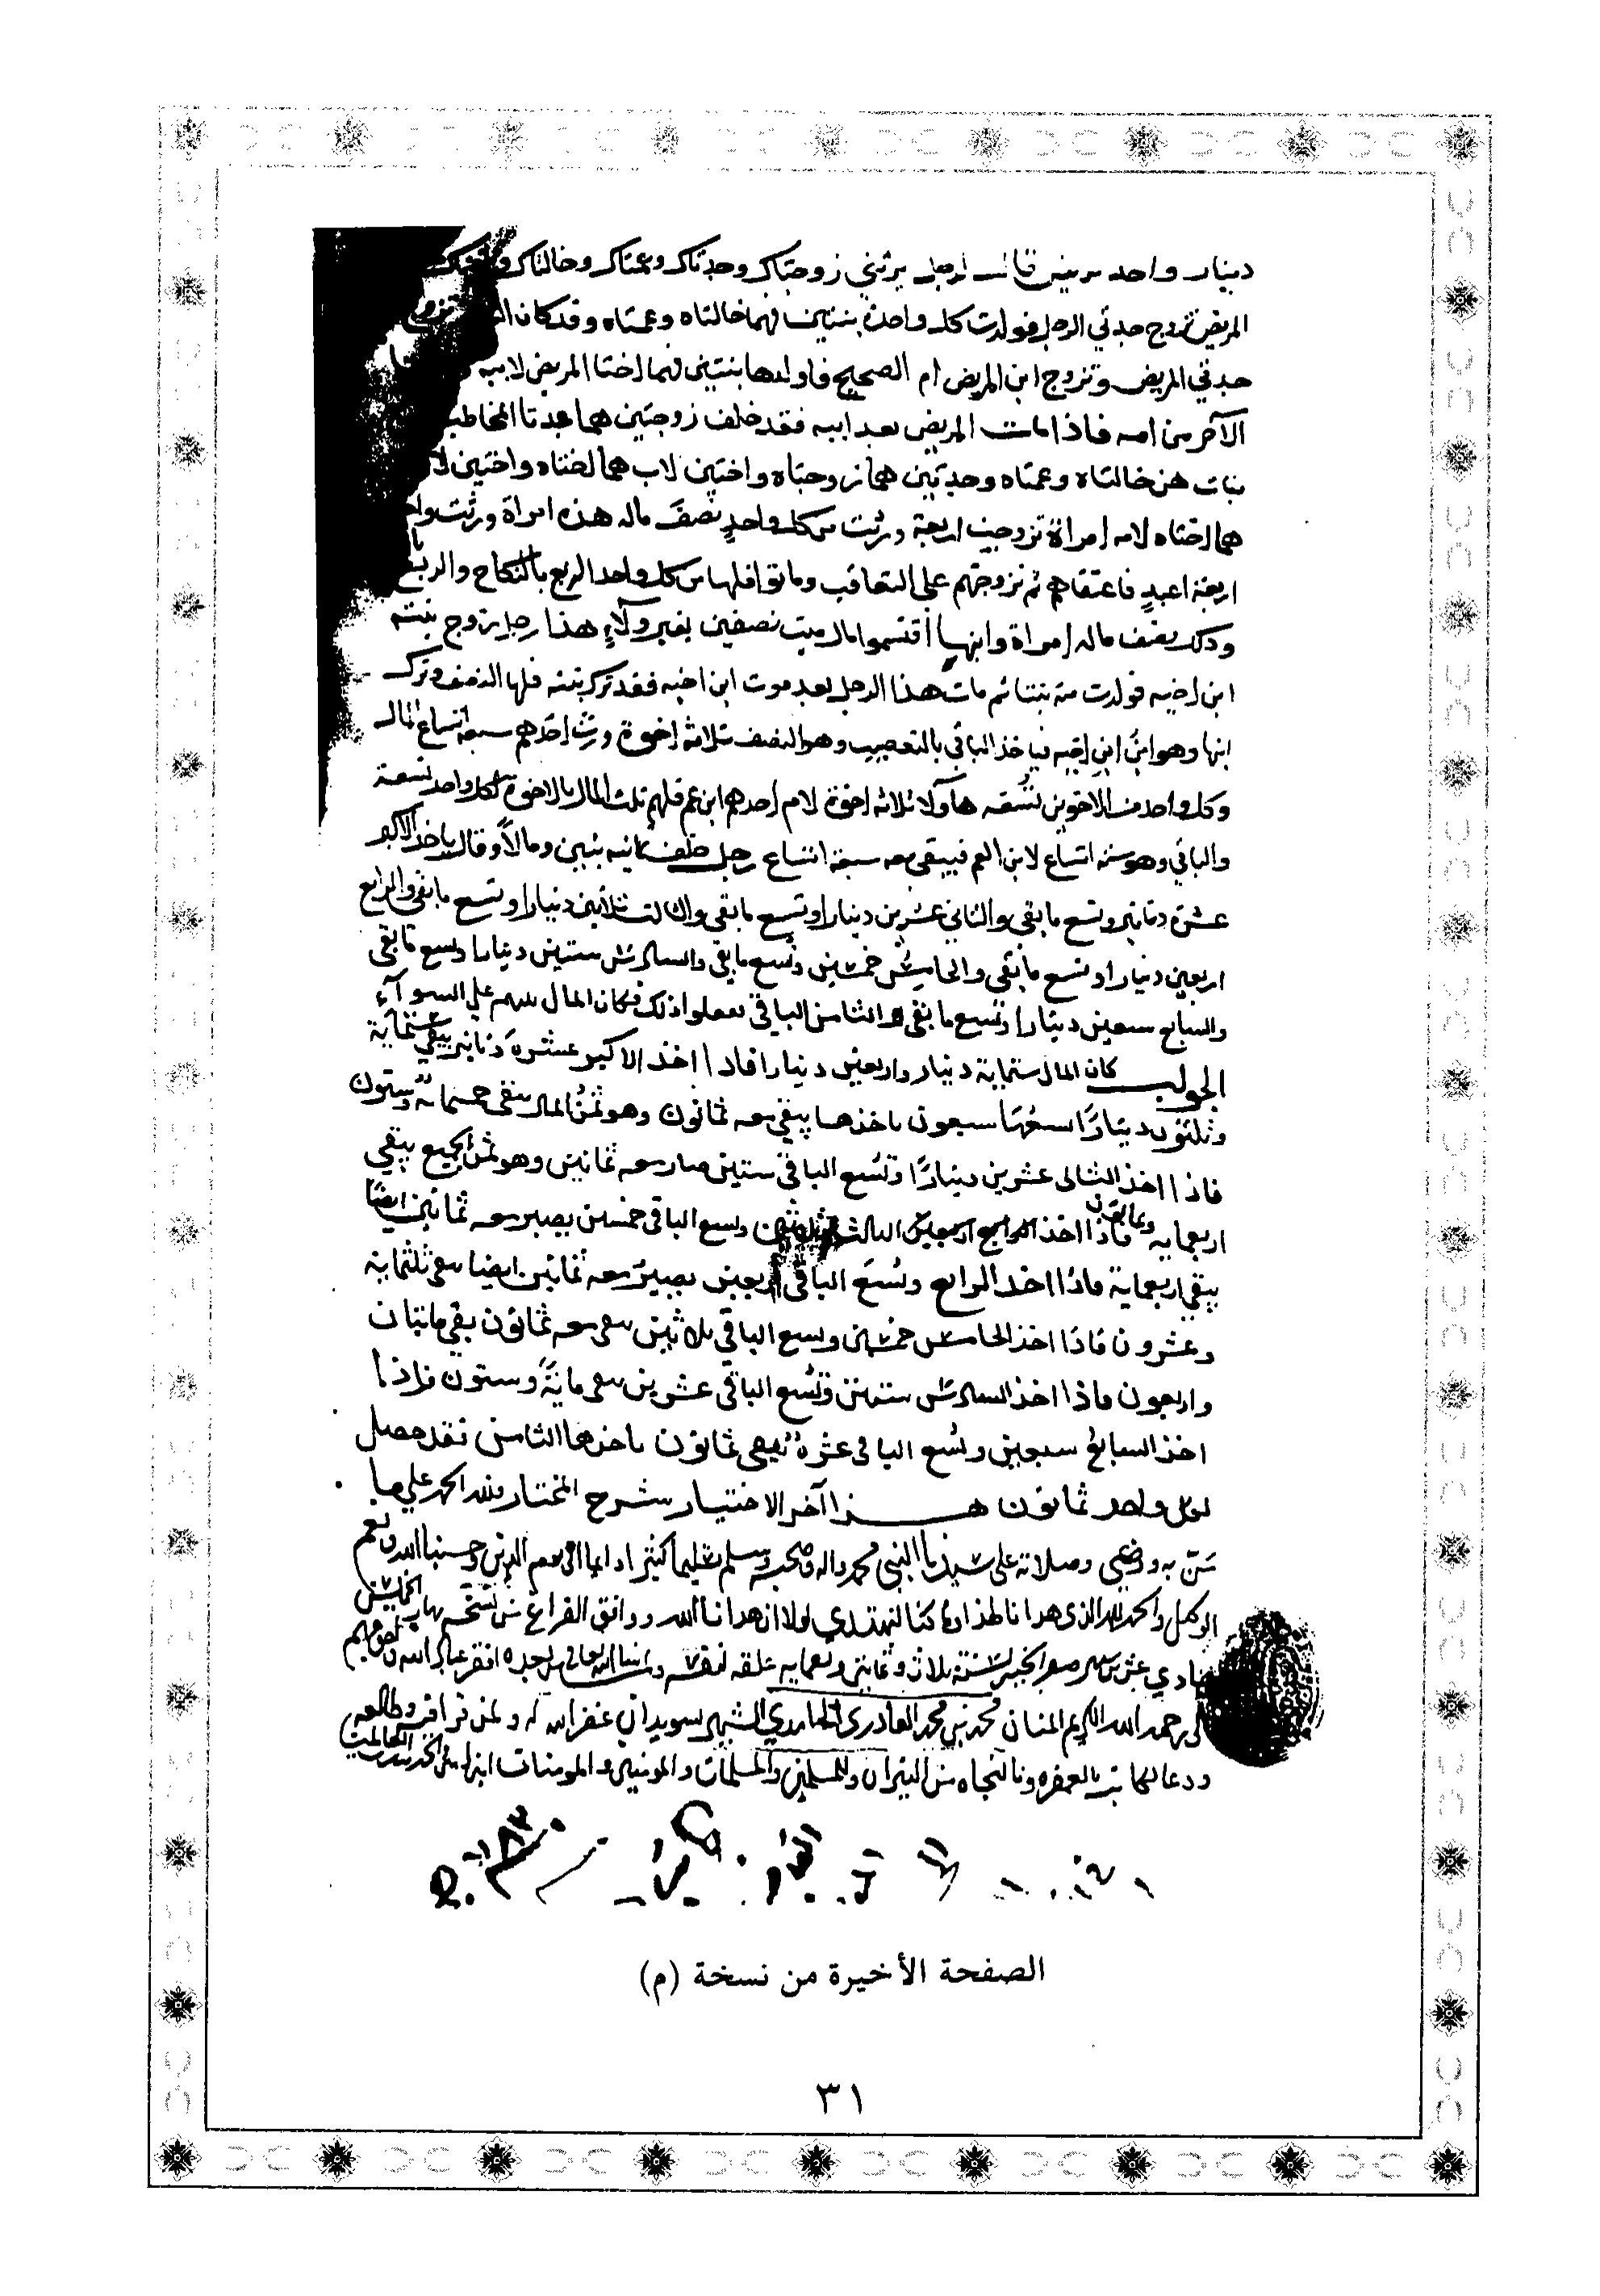 دينار واحد مريض قال لرجل يرثني زوجتاك وجدتاك وعمتاك وخالتاك
المريض تزوج جدتي الرجل فولدت كل واحدة بنتين فهما خالتاه وعمتاه وقد كان
جدتي المريض وتزوج ابن المريض ام الصحيح فاولدها بنتين فهما اختا المريض لابيه
الآخر من امه فاذا مات المريض بعد ابيه فقد خلف زوجتين هما جدتا المخاطب
بنات هن خالتاه وعمتاه وجدتين هما زوجتاه واختين لاب هما اختاه واختين
هما اختاه لامه امراة تزوجت اربعة ورثت من كل واحدٍ نصفَ ماله هذه امراة ورثت
اربعة اعبدٍ فاعتقاهم ثم تزوجتهم على التعاقب وماتوا فلها من كل واحد الربع بالنكاح والربع
وذلك نصف ماله امراة وابنها اقتسموا مال ميت نصفين بغير ولآءٍ هذا رجل تزوج بنته
ابن اخيه فولدت منه ثم مات هذا الرجل بعد موت ابن اخيه فقد ترك بنته فلها النصف وترك
ابنها وهو ابنُ ابنِ اخيه فياخذ الباقي بالتعصيب وهو النصف ثلاثة اخوة ورث احدهم سبعة اتساع المال
وكل واحد من الاخوين تُسْعَه هاؤلا ثلاثة اخوة لام احدهم ابن عم فلهم ثلث المال بالاخوة لكل واحد تسعة
والباقي وهو ستة اتساع لابن العم فيبقى معه سبعة اتساع رجل خلف ثمانية بنين ومالاً وقال ياخذ الاكبر
عشرة دنانير وتسع ما بقي والثاني عشرين دينارا وتسع ما بقي والثالث ثلاثين دينارا وتسع ما بقي والرابع
اربعين دينارا وتسع ما بقي والخامس خمسين وتسع ما بقي والسادس ستين دينارا وتسع ما بقى
والسابع سبعين دينارا وتسع ما بقي والثامن الباقي ففعلوا ذلك فكان المال بينهم على السوآء
الجواب كان المال ستماية دينار واربعين دينارا فاذا اخذ الاكبر عشرة دنانير يبقى ستماية
وثلثون دينارًا تسعُهَا سبعون ياخذها يبقى معه ثمانون وهو ثمن المال يبقى خمسماية وستون
فاذا اخذ الثاني عشرين دينارًا وتُسع الباقي ستين صار معه ثمانين وهو ثمن الجميع يبقى
اربعماية وثمانون فاذا اخذ الثالث ثلثين وتسع الباقي خمسين يصير معه ثمانين ايضا
يبقى اربعماية فاذا اخذ الرابع وتُسعَ الباقي اربعين يصير معه ثمانين ايضا بقى ثلثماية
وعشرون فاذا اخذ الخامس خمسين وتسع الباقي ثلاثين بقى معه ثمانون بقي مائتان
واربعون فاذا اخذ السادس ستين وتُسع الباقي عشرين بقى مائة وستون فاذا
اخذ السابع سبعين وتُسع الباقي عشرة يبقى ثمانون ياخذها الثامن فقد حصل
لكل واحد ثمانون هذا آخر الاختيار شرح المختار ولله الحمد على ما
مَنّ به وصلاته على سيدنا النبي محمد واله وصحبه وسلم تسليما كثيرا دايما الى يوم الدين وحسبنا الله ونعم
الوكيل والحمد لله الذي هدانا لهذا وما كنا لنهتدي لولا ان هدانا الله ووافق الفراغ من نسخه نهار الخميس
حادي عشر من شهر صفر الخير سنة ثلاث وثمانين علقه لنفسه ولمن شا الله تعالى من بعده افقر عباد الله واحوجهم
الى رحمة الله الكريم المنان محمد بن محمد القادري الحامدي الشهير بسويدان غفر الله له ولمن قرا فيه وطالعه
ودعا لكاتبه بالمغفرة وبالنجاة من النيران وللمسلمين والمسلمات والمومنين والمومنات
الصفحة الأخيرة من نسخة (م)
٣١